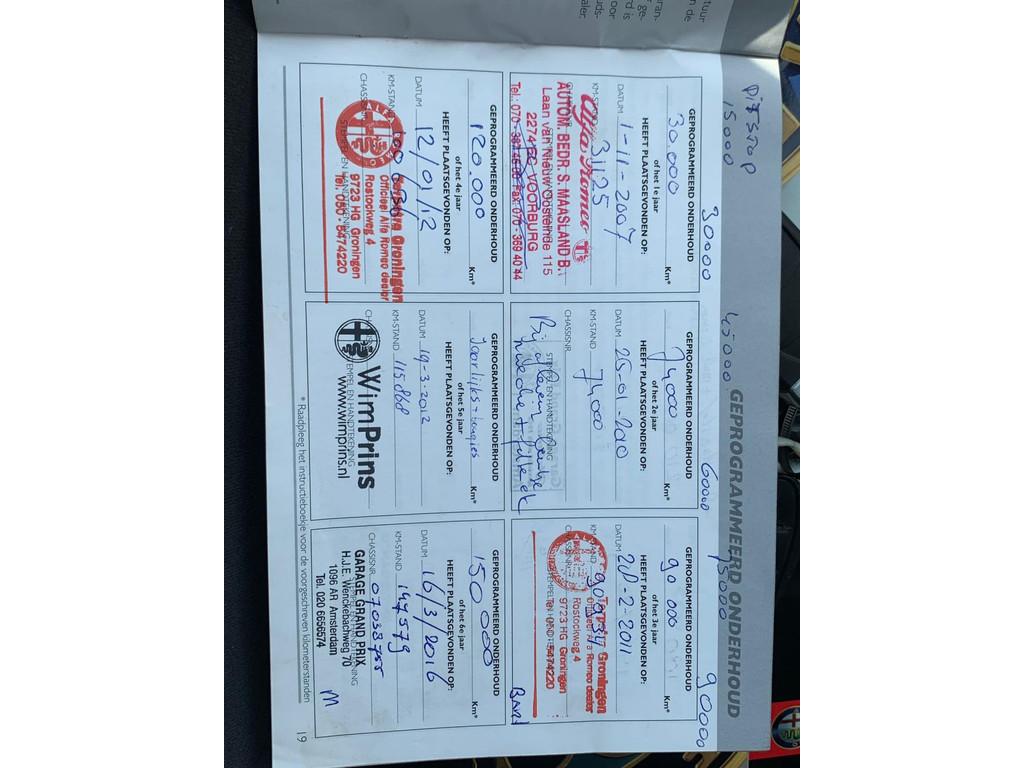 GEPROGRAMMEERD ONDERHOUD
15000
30000
45000
60000
75000
90000
GEPROGRAMMEERD ONDERHOUD
30.000 Km*
of het 1e jaar
HEEFT PLAATSGEVONDEN OP:
DATUM 1-11-2007
KM-STAND 31125
Alfa Romeo
AUTOM. BEDR. S. MAASLAND B.
Laan van Nieuw Oosteinde 115
2274 EC VOORBURG
GEPROGRAMMEERD ONDERHOUD
74000 Km*
of het 2e jaar
HEEFT PLAATSGEVONDEN OP:
DATUM 25-01-2010
KM-STAND 74000
CHASSISNR
STEMPEL EN HANDTEKENING
GEPROGRAMMEERD ONDERHOUD
90 000 Km*
of het 3e jaar
HEEFT PLAATSGEVONDEN OP:
DATUM 28-2-2011
KM-STAND
Groningen
Rostockweg 4
9723 HG Groningen
Tel. 050-5474220
GEPROGRAMMEERD ONDERHOUD
120.000 Km*
of het 4e jaar
HEEFT PLAATSGEVONDEN OP:
DATUM 12/01/12
KM-STAND
Groningen
Officieel Alfa Romeo dealer
Rostockweg 4
9723 HG Groningen
Tel. 050-5474220
GEPROGRAMMEERD ONDERHOUD
Km*
of het 5e jaar
HEEFT PLAATSGEVONDEN OP:
DATUM 19-3-2012
KM-STAND 115868
WimPrins
STEMPEL EN HANDTEKENING
www.wimprins.nl
GEPROGRAMMEERD ONDERHOUD
150 000 Km*
of het 6e jaar
HEEFT PLAATSGEVONDEN OP:
DATUM 16/3/2016
KM-STAND 147579
CHASSISNR 07038755
GARAGE GRAND PRIX
H.J.E. Wenckebachweg 70
1096 AR Amsterdam
Tel. 020 6656574
* Raadpleeg het instructieboekje voor de voorgeschreven kilometerstanden
19